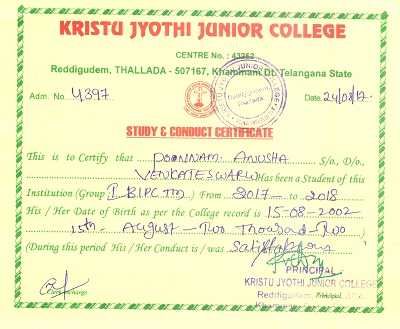 KRISTU JYOTHI JUNIOR COLLEGE
CENTRE No.: 43252
Reddigudem, THALLADA - 507167, Khammam Dt. Telangana State
Adm. No. 4397
KRISTU JYOTHI JUNIOR COLLEGE
Reddygudem
Thallada
Date. 24/08/
STUDY & CONDUCT CERTIFICATE
This is to Certify that POONNAM. ANUSHA S/o., D/o.,
VENKATESWARLU Has been a Student of this
Institution (Group I BIPC TM) From 2017 to 2018
His / Her Date of Birth as per the College record is 15-08-2002
15th August - Two Thousand Two)
(During this period His / Her Conduct is / was Satisfactory
PRINCIPAL
KRISTU JYOTHI JUNIOR COLLEGE
Reddigudem, THALLADA
Principal